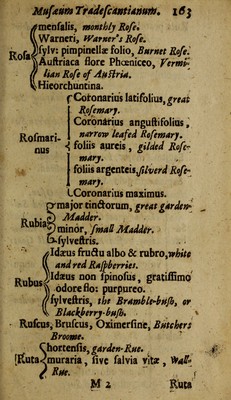 Musæum Tradescantianum. 163
mensalis, monthly Rose.
Warneri, Warner's Rose.
Rosa sylv: pimpinellæ folio, Burnet Rose.
Austriaca flore Phœniceo, Vermi-
lian Rose of Austria.
Hieorchuntina.
Coronarius latifolius, great
Rosemary.
Coronarius angustifolius,
narrow leafed Rosemary.
Rosmari-
nus
foliis aureis, gilded Rose-
mary.
foliis argenteis, silverd Rose-
mary.
Coronarius maximus.
major tinctorum, great garden-
Madder.
Rubia
minor, small Madder.
sylvestris.
Idæus fructu albo & rubro, white
and red Raspberries.
Rubus
Idæus non spinosus, gratissimo
odore flo: purpureo.
sylvestris, the Bramble-bush, or
Blackberry-bush.
Ruscus, Bruscus, Oximersine, Butchers
Broome.
hortensis, garden-Rue.
Ruta muraria, sive salvia vitæ, Wall-
Rue.
M 2 Ruta